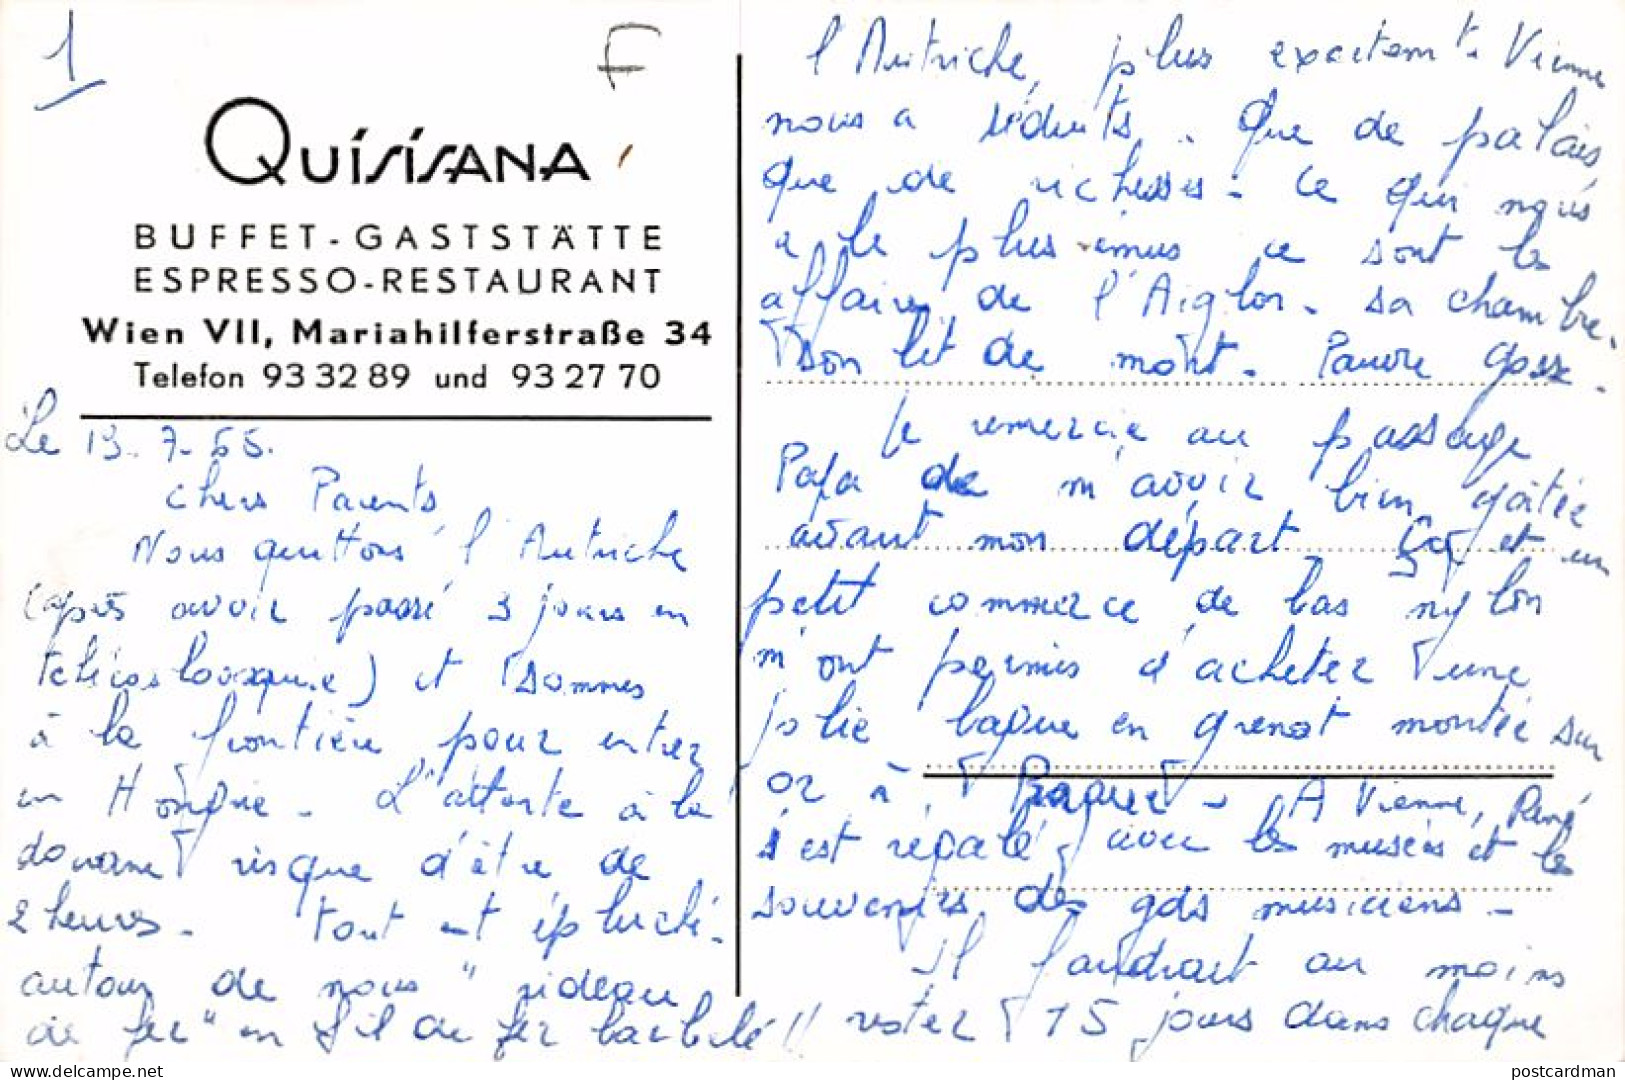 1
F
QUISISANA
BUFFET-GASTSTÄTTE
ESPRESSO-RESTAURANT
Wien VII, Mariahilferstraße 34
Telefon 93 32 89 und 93 27 70
Le 19.7.65.
Chers Parents,
Nous quittons l'Autriche
(après avoir passé 3 jours en
Tchécoslovaquie) et sommes
à la frontière pour entrer
en Hongrie - L'attente à la
douane risque d'être de
2 heures - Tout est épluché.
autour de nous "rideau
de fer" en fil de fer barbelé!!
l'Autriche, plus exactemt. Vienne
nous a séduits. Que de palais,
que de richesses - Ce qui nous
a le plus émus ce sont les
affaires de l'Aiglon - sa chambre.
son lit de mort - Pauvre gosse.
Je remercie au passage
Papa de m'avoir bien gâtée
avant mon départ. Ça et un
petit commerce de bas nylon
m'ont permis d'acheter une
jolie bague en grenat montée sur
or à Prague - A Vienne, René
s'est régalé avec les musées et les
souvenirs des gds musiciens -
Il faudrait au moins
rester 15 jours dans chaque
postcardman